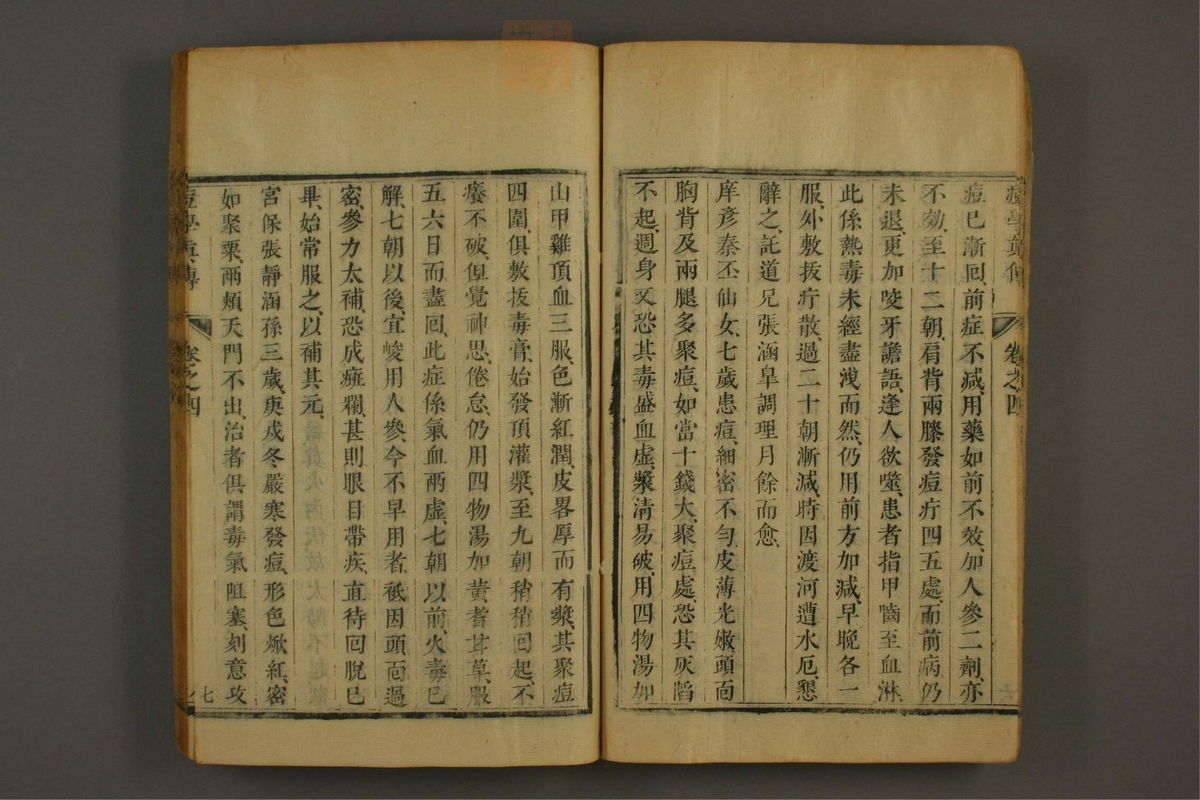 痘學眞傳 卷之四
痘已漸囘、前症不减、用藥如前不效、加人參二劑、亦
不効、至十二朝、肩背兩膝發痘疔四五處、而前病仍
未退、更加咬牙譫語、逢人欲噬、患者指甲嚙至血淋、
此係熱毒未經盡洩而然、仍用前方加减、早晚各一
服、外敷拔疔散、過二十朝漸减、時因渡河遭水厄、懇
辭之、託道兄張涵臯調理月餘而愈、
庠彥秦丕仙女、七歲患痘、細密不勻、皮薄光嫩、頭面
胸背及兩腿多聚痘、如當十錢大、聚痘處、恐其灰陷
不起、週身又恐其毒盛血虛、漿清易破、用四物湯加
山甲雞頂血三服、色漸紅潤、皮畧厚而有漿、其聚痘
四圍、俱敷拔毒膏、始發頂灌漿、至九朝稍稍囘起、不
癢不破、但覺神思倦怠、仍用四物湯加黃耆甘草、服
五六日而盡囘、此症係氣血兩虛、七朝以前、火毒已
解、七朝以後、宜峻用人參、今不早用者、祗因頭面過
密、參力太補、恐成癰爛、甚則眼目帶疾、直待囘脫已
畢、始常服之、以補其元、
宮保張靜涵孫三歲、庚戌冬嚴寒發痘、形色焮紅、密
如聚粟、兩頰天門不出、治者俱謂毒氣阻塞、刻意攻
痘學眞傳 卷之四 七